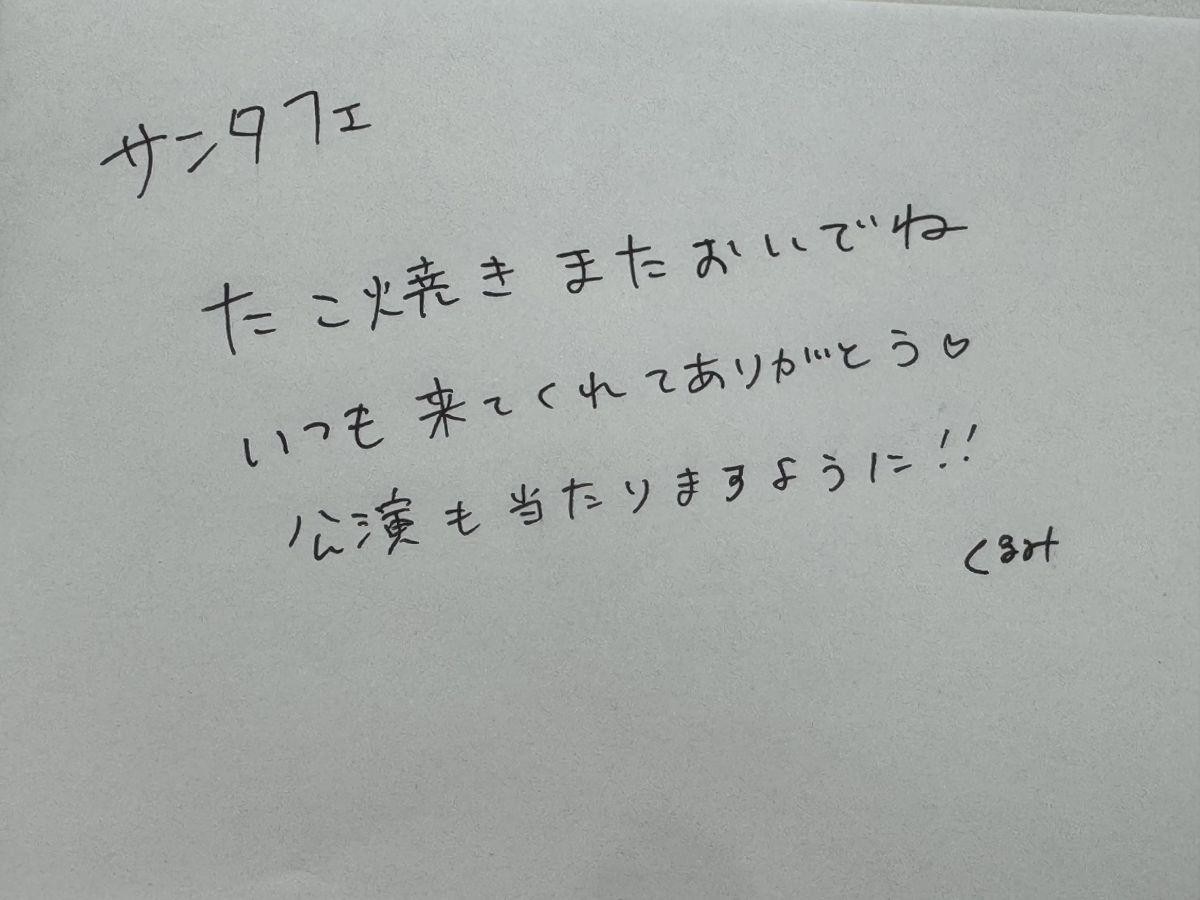 サンタフェ
たこ焼き またおいでね
いつも 来てくれてありがとう♡
公演も当たりますように!!
くるみ